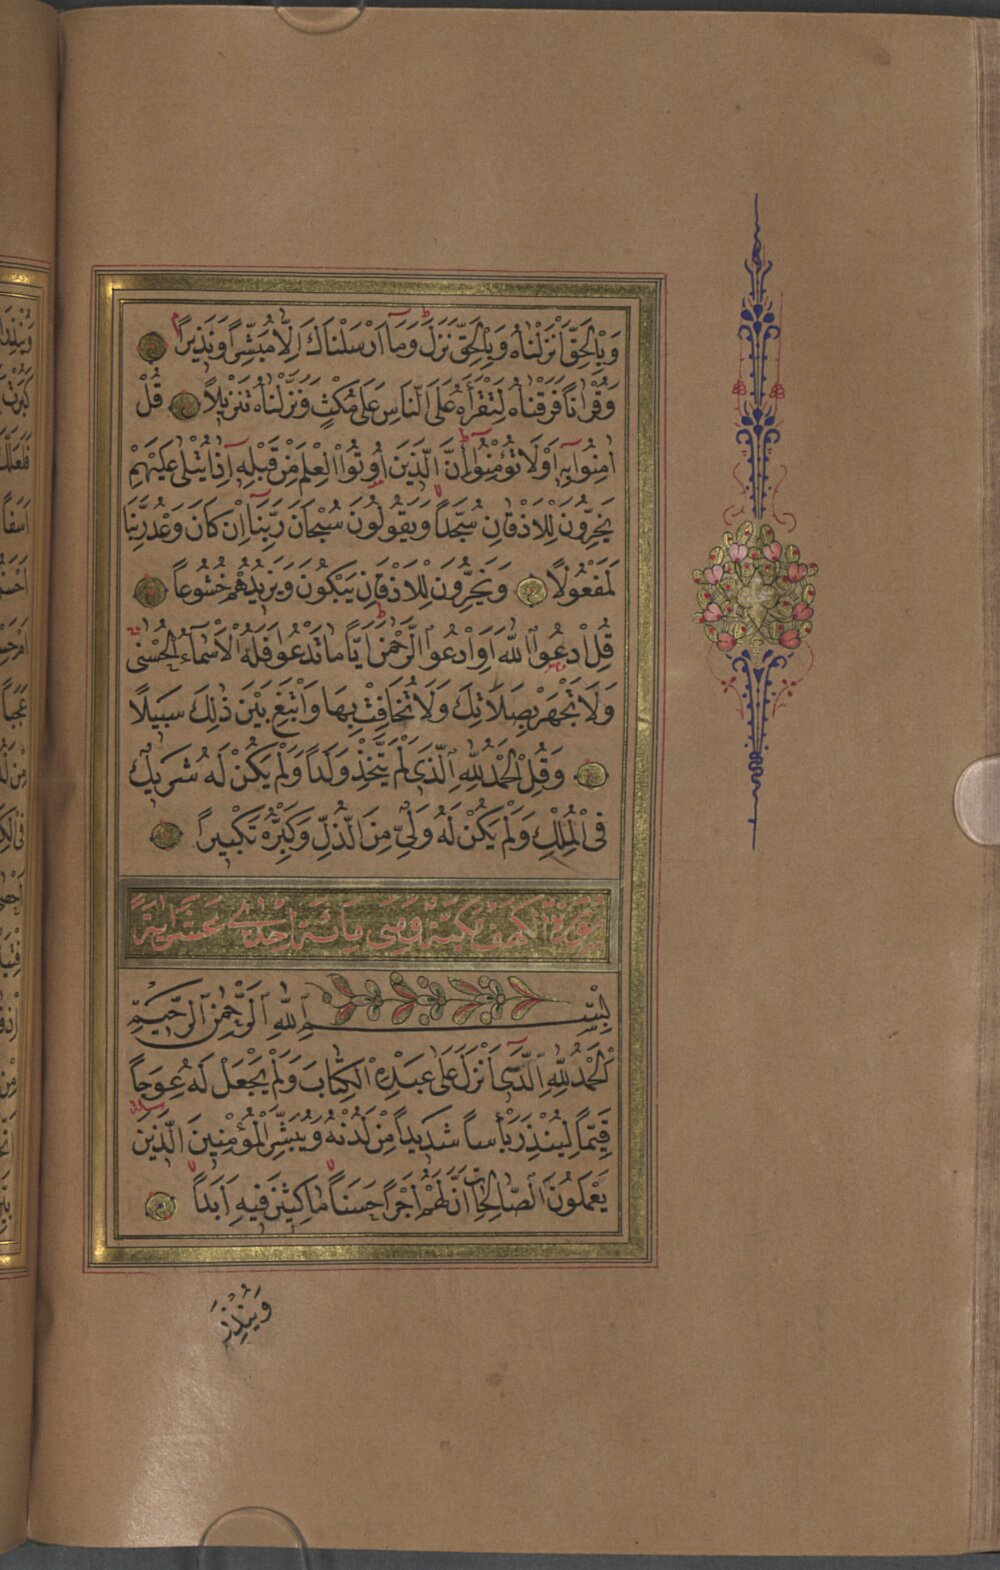 وَبِالْحَقِّ اَنْزَلْنَاهُ وَبِالْحَقِّ نَزَلَ وَمَٓا اَرْسَلْنَاكَ اِلَّا مُبَشِّرًا وَنَذِيرًا
وَقُرْاٰنًا فَرَقْنَاهُ لِتَقْرَاَهُ عَلَى النَّاسِ عَلٰى مُكْثٍ وَنَزَّلْنَاهُ تَنْزِيلًا قُلْ
اٰمِنُوا بِهٖٓ اَوْ لَا تُؤْمِنُوا اِنَّ الَّذِينَ اُوتُوا الْعِلْمَ مِنْ قَبْلِهٖٓ اِذَا يُتْلٰى عَلَيْهِمْ
يَخِرُّونَ لِلْاَذْقَانِ سُجَّدًا وَيَقُولُونَ سُبْحَانَ رَبِّنَٓا اِنْ كَانَ وَعْدُ رَبِّنَا
لَمَفْعُولًا وَيَخِرُّونَ لِلْاَذْقَانِ يَبْكُونَ وَيَزِيدُهُمْ خُشُوعًا
قُلِ ادْعُوا اللّٰهَ اَوِ ادْعُوا الرَّحْمٰنَ اَيًّا مَا تَدْعُوا فَلَهُ الْاَسْمَٓاءُ الْحُسْنٰى
وَلَا تَجْهَرْ بِصَلَاتِكَ وَلَا تُخَافِتْ بِهَا وَابْتَغِ بَيْنَ ذٰلِكَ سَبِيلًا
وَقُلِ الْحَمْدُ لِلّٰهِ الَّذِي لَمْ يَتَّخِذْ وَلَدًا وَلَمْ يَكُنْ لَهُ شَرِيكٌ
فِي الْمُلْكِ وَلَمْ يَكُنْ لَهُ وَلِيٌّ مِنَ الذُّلِّ وَكَبِّرْهُ تَكْبِيرًا
سُورَةُ الْكَهْفِ مَكِّيَّةٌ وَهِيَ مِائَةٌ اِحْدٰى عَشَرَ اٰيَةً
بِسْمِ اللّٰهِ الرَّحْمٰنِ الرَّحِيمِ
اَلْحَمْدُ لِلّٰهِ الَّذِٓي اَنْزَلَ عَلٰى عَبْدِهِ الْكِتَابَ وَلَمْ يَجْعَلْ لَهُ عِوَجًا
قَيِّمًا لِيُنْذِرَ بَأْسًا شَدِيدًا مِنْ لَدُنْهُ وَيُبَشِّرَ الْمُؤْمِنِينَ الَّذِينَ
يَعْمَلُونَ الصَّالِحَاتِ اَنَّ لَهُمْ اَجْرًا حَسَنًا مَاكِثِينَ فِيهِ اَبَدًا
وَيُنْذِرَ